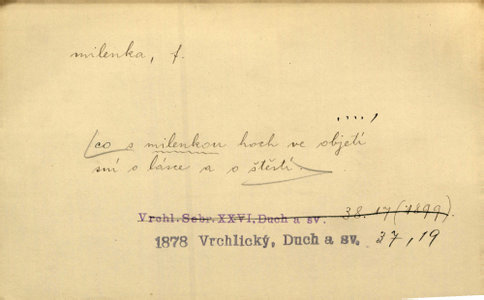 milenka, f.
....,
(co s milenkou hoch ve objetí
sní o lásce a o štěstí.
Vrchl. Sebr. XXVI, Duch a sv. 38.17 (1899).
1878 Vrchlický, Duch a sv. 37, 19